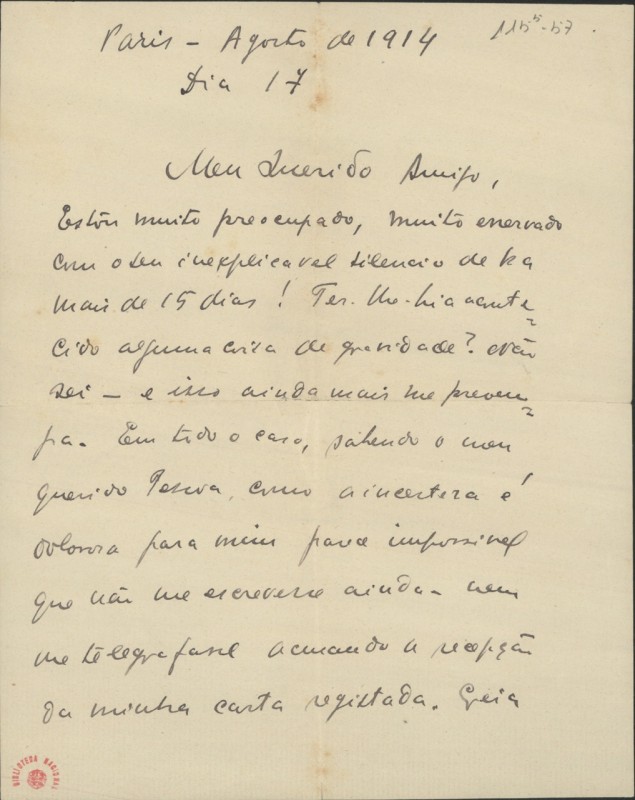 115⁵-57
Paris - Agosto de 1914
Dia 17
Meu Querido Amigo,
Estou muito preocupado, muito enervado
com o seu inexplicavel silencio de ha
mais de 15 dias! Ter-lhe-hia aconte-
cido alguma coisa de gravidade? Não
sei - e isso ainda mais me preocu-
pa. Em todo o caso, sabendo o meu
querido Pessoa, como a incerteza é
dolorosa para mim parece impossivel
que não me escrevesse ainda - nem
me telegrafasse acusando a recepção
da minha carta registada. Creia
BIBLIOTECA NACIONAL